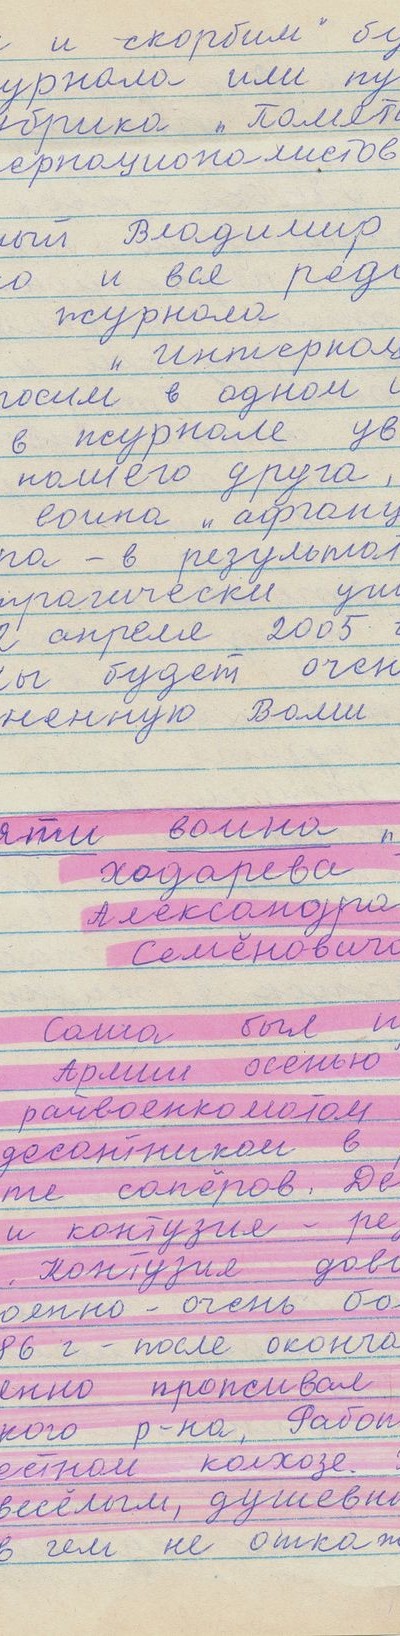 и скорбим" бу
урнала или пу
убрика „Памят
ернационалистов
ный Владимир
ко и вся реда
журнала
„Интернац
росим в одном и
в журнале ув
нашего друга,
воина „афганц
ра - в результат
трагически уш
2 апреля 2005 г
мы будет очен
ненную Вами
яти воина „
Ходарева
Александра
Семёновича
Саша был п
Армии осенью
райвоенкоматом
десантником в
те сапёров. Де
и контузия - ре
. Контузия дов
оянно - очень бо
86 г - после оконча
енно проживал
кого р-на, Работ
естном колхозе.
весёлым, душевн
в чем не отказ